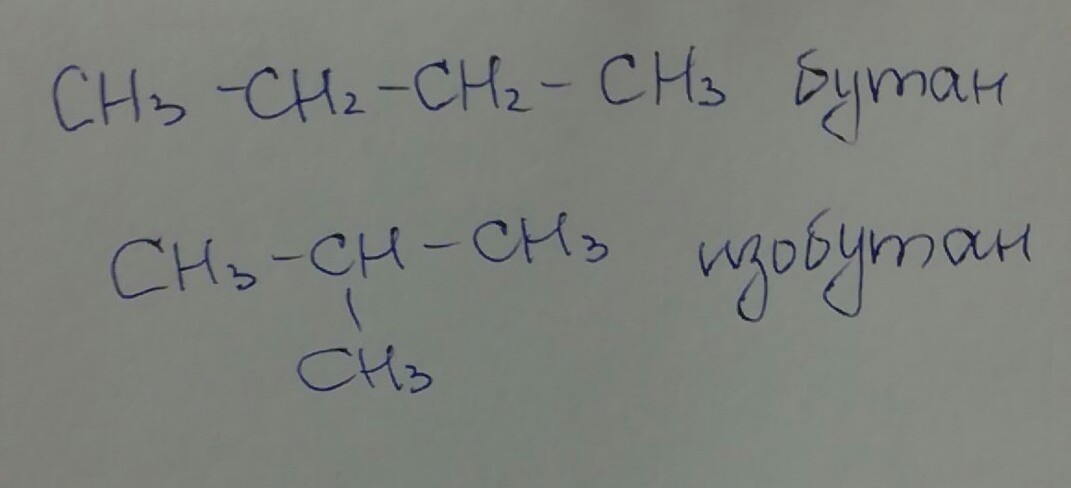 CH₃ - CH₂ - CH₂ - CH₃ бутан
CH₃ - CH - CH₃ изобутан
|
CH₃